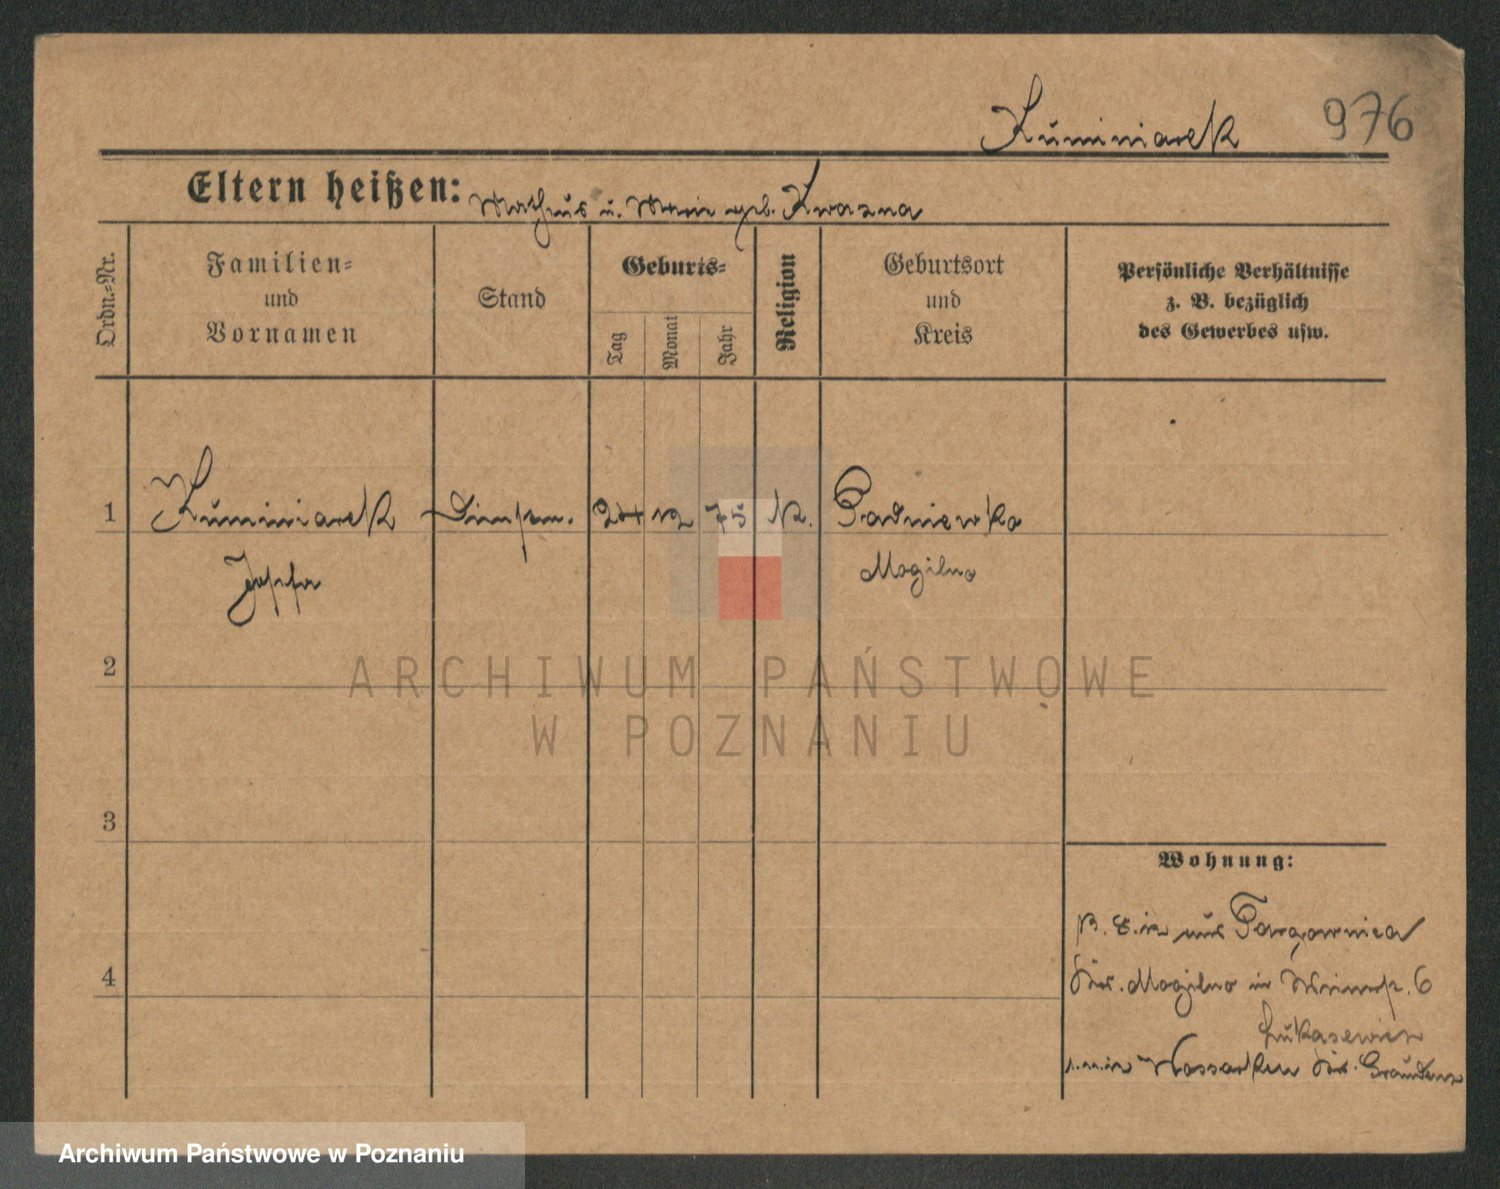 Kuminiarek 976
Eltern heißen: Matheus u. Marie geb. Kwasna
Ordn.-Nr.
Familien-
und
Vornamen
Stand
Geburts-
Tag
Monat
Jahr
Religion
Geburtsort
und
Kreis
Persönliche Verhältnisse
z. B. bezüglich
des Gewerbes usw.
1 Kuminiarek 24 12 75 k. Padniewko
Josefa Mogilno
2
ARCHIWUM PAŃSTWOWE
W POZNANIU
3
Wohnung:
aus Targownica
4
Mogilno in 6
Lukasewicz
Wossarken Graudenz
Archiwum Państwowe w Poznaniu